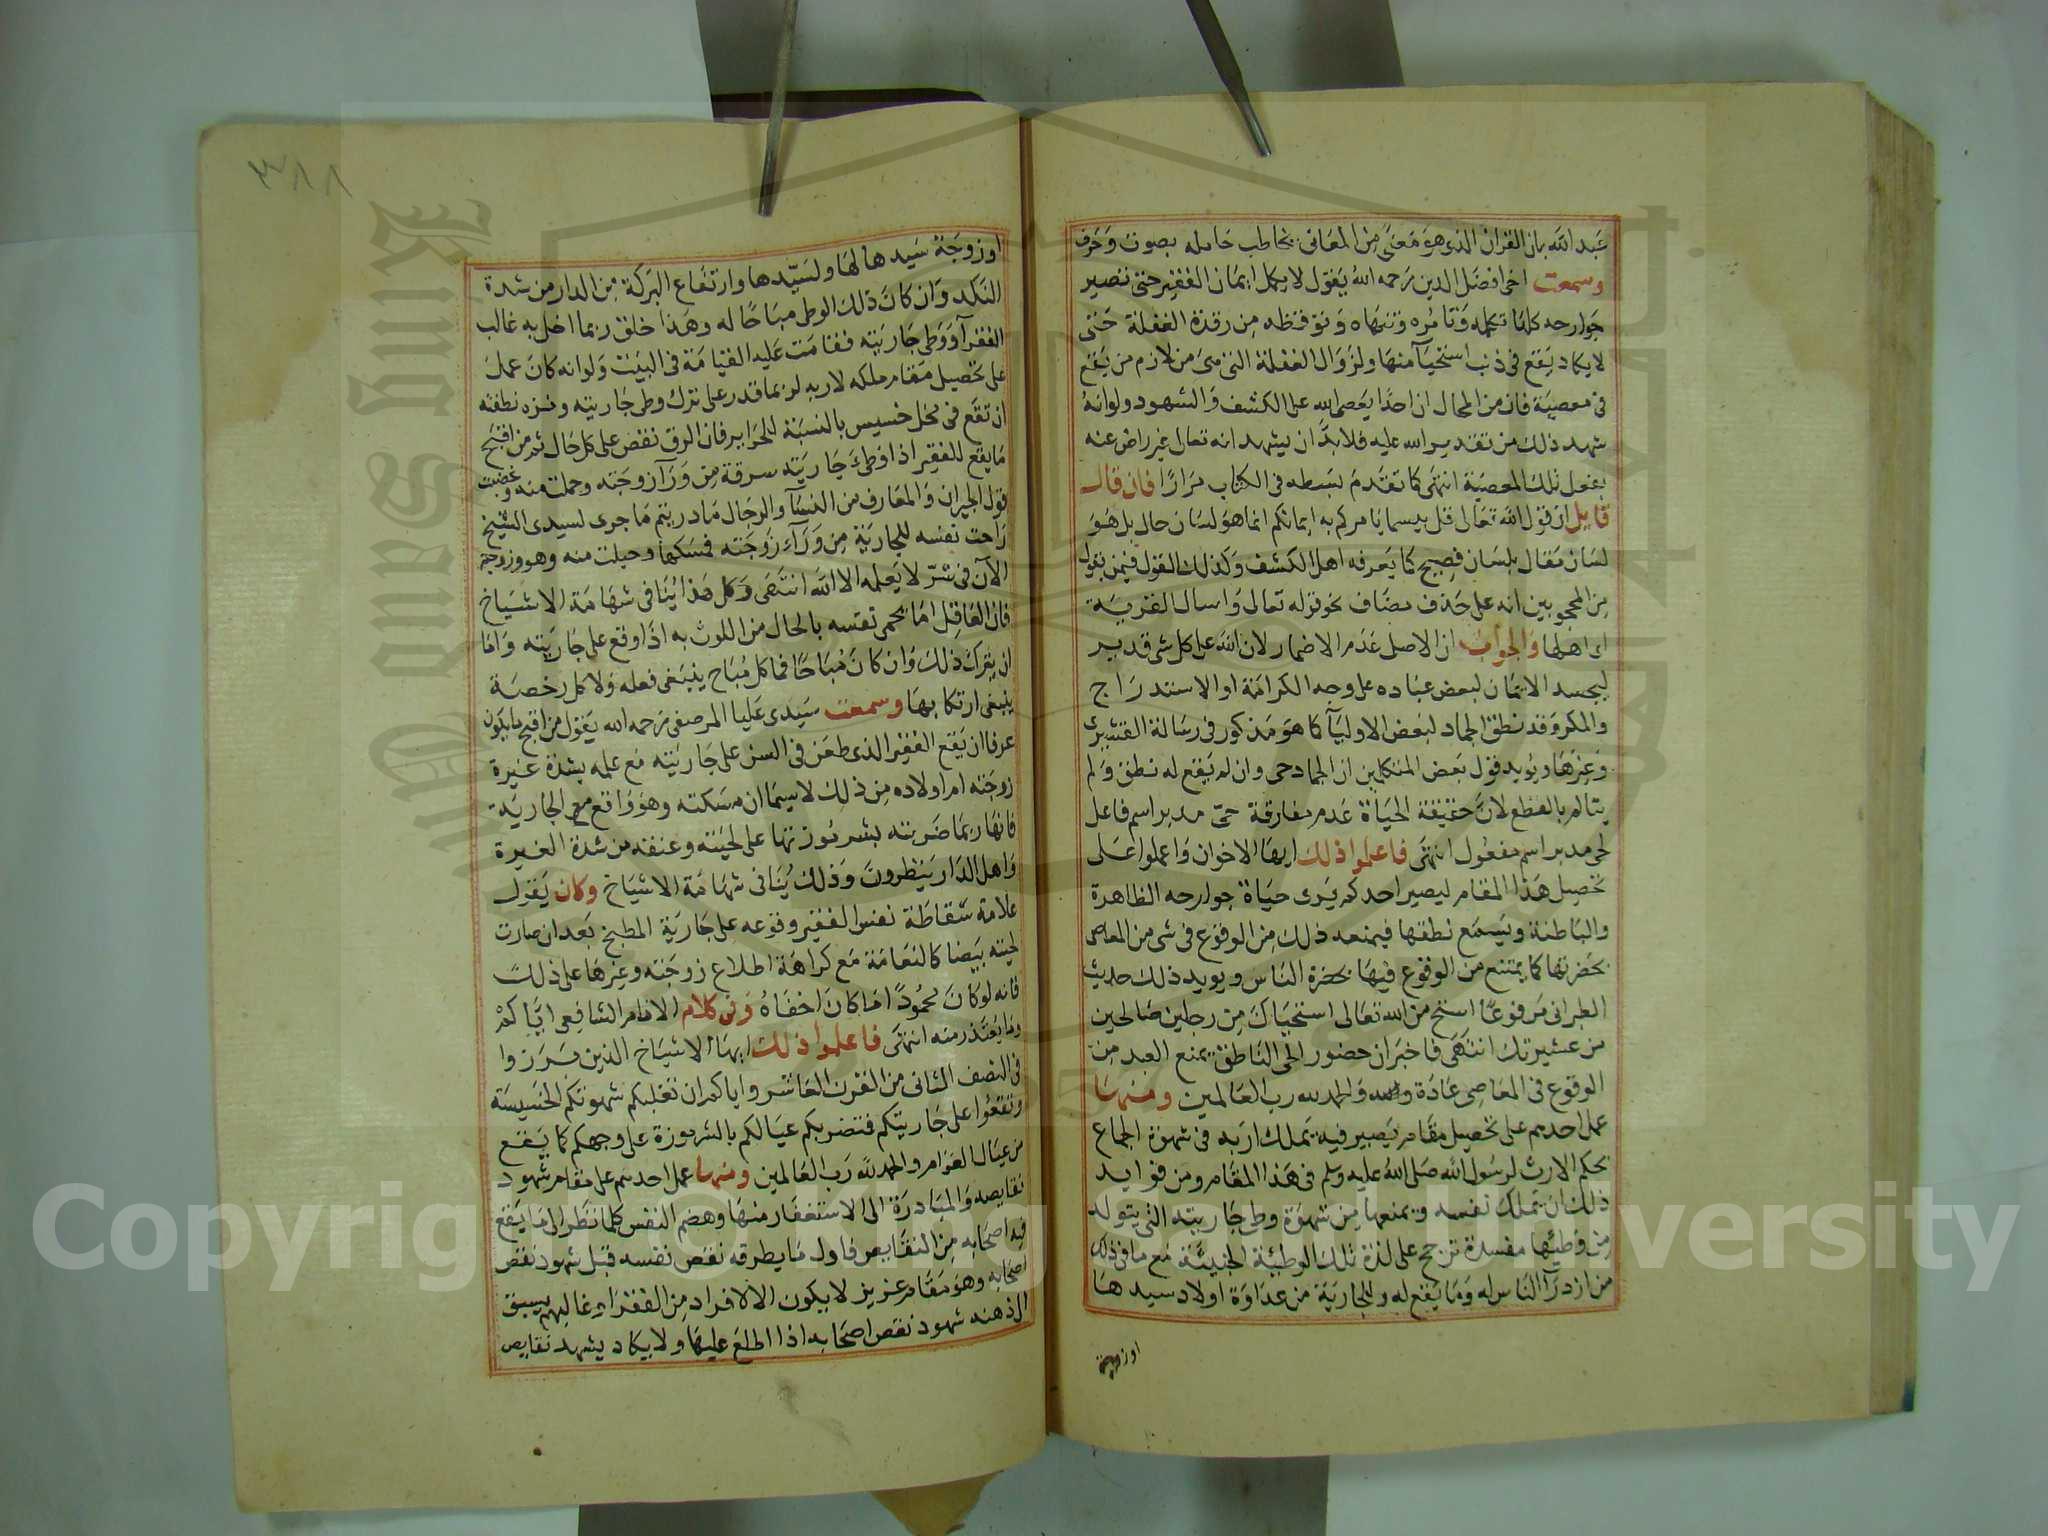 عبد الله بان القران الذى هو معنى من المعانى يخاطب حامله بصوت وحرف
وسمعت اخى افضل الدين رحمه الله يقول لا يكمل ايمان الفقير حتى تصير
جوارحه كلها تكلمه وتامره وتنهاه وتوقظه من رقدة الغفلة حتى
لا يكاد يقع فى ذنب استحيآ منها ولزوال الغفلة التى هى من لازم من يقع
فى معصية فان من المحال ان احدا يعصى الله على الكشف والشهود ولو انه
شهد ذلك من تقدير الله عليه فلا بد ان يشهد انه تعالى غير راض عنه
بفعل تلك المعصية انتهى كما تقدم بسطه فى الكتاب مرارا فان قال
قايل ان قول الله تعالى قل بيسما يامركم به ايمانكم انما هو لسان حال بل هو
لسان مقال بلسان فصيح كما يعرفه اهل الكشف وكذلك القول فيمن يقول
من المحجوبين انه على حذف مضاف نحو قوله تعالى واسال القرية
اى اهلها والجواب ان الاصل عدم الاضمار لان الله على كل شى قدير
ليجسد الايمان لبعض عباده على وجه الكرامة او الاستدراج
والمكر وقد نطق الجماد لبعض الاوليآ كما هو مذكور فى رسالة القشيرى
وغيرها ويويد قول بعض المتكلمين ان الجماد حى وان لم يقع له نطق ولم
يتالم بالقطع لان حقيقة الحياة عدم مفارقة حى مدبر اسم فاعل
لحى مدبر اسم مفعول انتهى فاعلموا ذلك ايها الاخوان واعملوا على
تحصيل هذا المقام ليصير احدكم يرى حياة جوارحه الظاهرة
والباطنة ويسمع نطقها فيمنعه ذلك من الوقوع فى شى من المعاصى
بحضرتها كما يمتنع من الوقوع فيها بحضرة الناس ويويد ذلك حديث
الطبرانى مرفوعا استح من الله تعالى استحياك من رجلين صالحين
من عشيرتك انتهى فاخبر ان حضور الحى الناطق يمنع العبد من
الوقوع فى المعاصى عادة والحمد لله رب العالمين ومنها
عمل احدهم على تحصيل مقام يصير فيه يملك اربه فى شهوة الجماع
بحكم الارث لرسول الله صلى الله عليه وسلم فى هذا المقام ومن فوايد
ذلك ان يملك نفسه ويمنعها من شهوة وطى جاريته التى يتولد
من وطيها مفسدة ترجح على لذة تلك الوطيئة الخبيثة مع ما فى ذلك
من ازدرآ الناس له وما يقع له وللجارية من عداوة اولاد سيدها
او زوجة
٣٨٨
او زوجة سيدها لها ولسيدها وارتفاع البركة من الدار من شدة
النكد وان كان ذلك الوطى مباحا له وهذا خلق ربما اخل به غالب
الفقرآ ووطى جاريته فقامت عليه القيامة فى البيت ولو انه كان عمل
على تحصيل مقام ملكه لاربه لربما قدر على ترك وطى جاريته ونزه نطفته
ان تقع فى محل خسيس بالنسبة للحراير فان الرق نقص على كل حال ثم من اقبح
ما يقع للفقير اذا وطئ جاريته سرقة من ورآ زوجته وحملت منه وغضبت
قول الجيران والمعارف من النسآ والرجال ما دريتم ما جرى لسيدى الشيخ
راحت نفسه للجارية من ورآء زوجته فمسكها وحبلت منه وهو وزوجته
الآن فى شر لا يعلمه الا الله انتهى وكل هذا ينافى شهامة الاشياخ
فان العاقل اما يحمى نفسه بالحال من اللوث به اذا وقع على جاريته واما
ان يترك ذلك وان كان مباحا فما كل مباح ينبغى فعله ولا كل رخصة
ينبغى ارتكابها وسمعت سيدى عليا المرصفى رحمه الله يقول من اقبح ما يكون
عرفا ان يقع الفقير الذى طعن فى السن على جاريته مع علمه بشدة غيرة
زوجته ام اولاده من ذلك لاسيما ان مسكته وهو واقع مع الجارية
فانها ربما ضربته بشرموزتها على لحيته وعنقه من شدة الغيرة
واهل الدار ينظرون وذلك ينافى شهامة الاشياخ وكان يقول
علامة سقاطة نفس الفقير وقوعه على جارية المطبخ بعد ان صارت
لحيته بيضا كالنعامة مع كراهة اطلاع زوجته وغيرها على ذلك
فانه لو كان محمودا ما كان اخفاه ومن كلام الامام الشافعى اياكم
وما يعتذر منه انتهى فاعلموا ذلك ايها الاشياخ الذين برزوا
فى النصف الثانى من القرن العاشر واياكم ان تغلبكم شهوتكم الخسيسة
وتقعوا على جاريتكم فتضربكم عيالكم بالشرموزة على وجهكم كما يقع
من عيال العوام والحمد لله رب العالمين ومنها عمل احدهم على مقام شهود
نقايصه والمبادرة الى الاستغفار منها وهضم النفس كلما نظر الى ما يقع
فيه اصحابه من النقايص فاول ما يطرقه نقص نفسه قبل شهود نقص
اصحابه وهو مقام عزيز لا يكون الا لافراد من الفقراء وغالبهم يسبق
الى ذهنه شهود نقص اصحابه اذا اطلع عليها ولا يكاد يشهد نقايص
Copyright © King Saud University